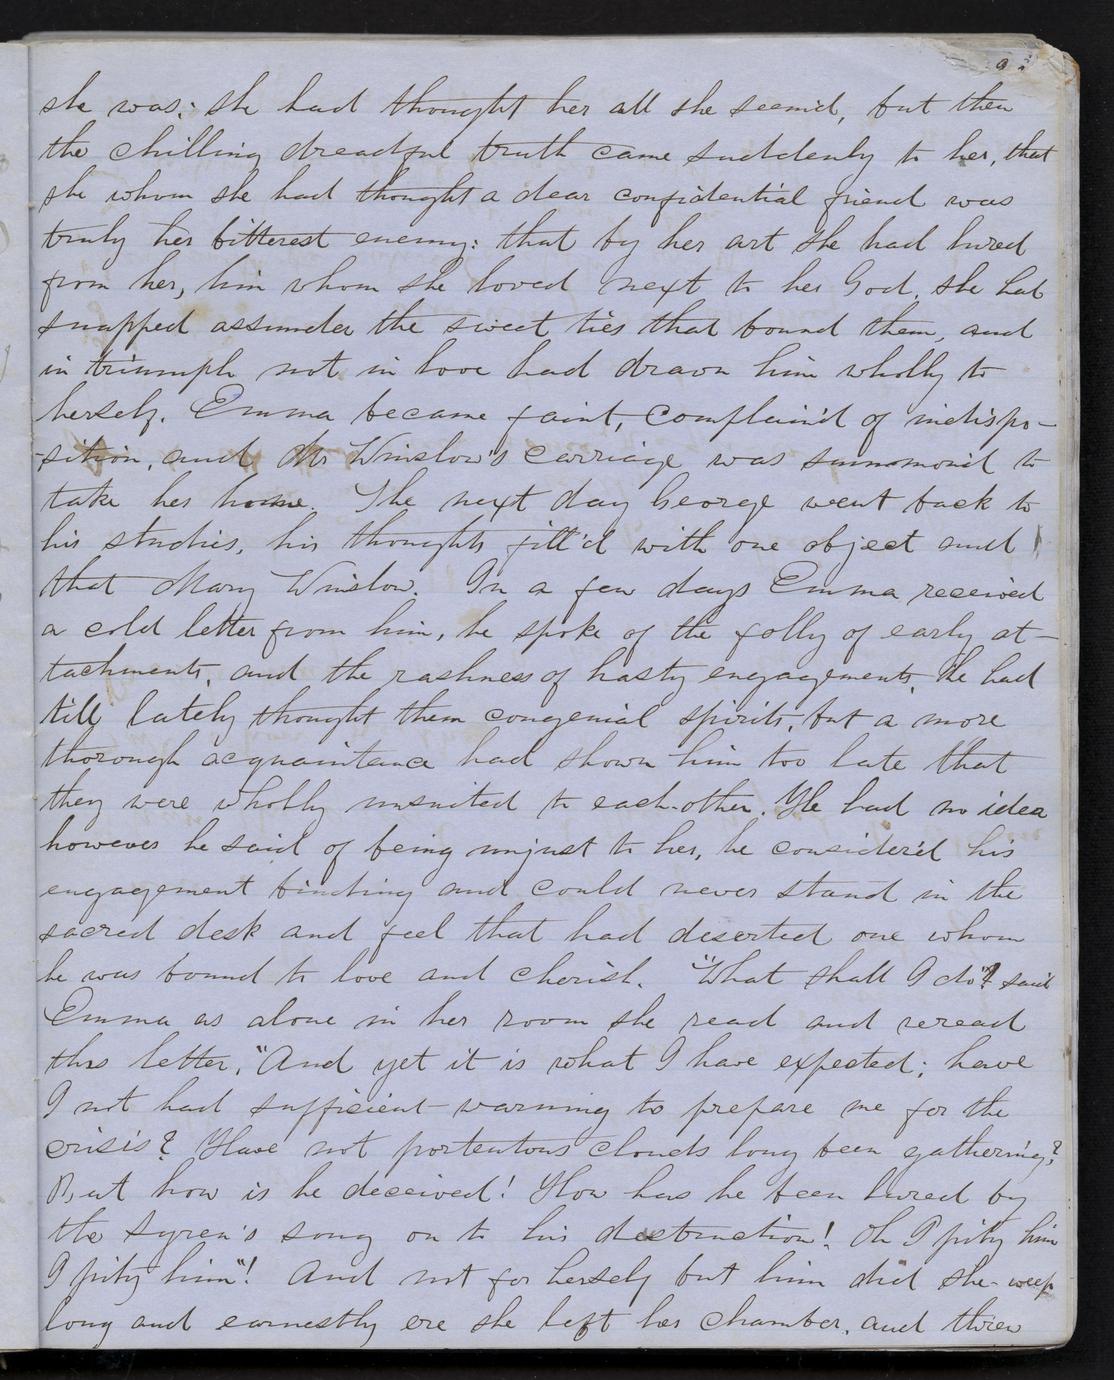 she was; she had thought her all she seem'd, but then
the chilling dreadful truth came suddenly to her, that
she whom she had thought a dear confidential friend was
truly her bitterest enemy: that by her art she had lured
from her, him whom she loved next to her God, she had
snapped assunder the sweet ties that bound them, and
in triumph not in love had drawn him wholly to
herself. Emma became faint, complain'd of indispo-
-sition, and Mr Winslow's carriage was summon'd to
take her home. The next day George went back to
his studies, his thoughts fill'd with one object and
that Mary Winslow. In a few days Emma received
a cold letter from him, he spoke of the folly of early at-
tachments, and the rashness of hasty engagements, he had
till lately thought them congenial spirits, but a more
thorough acquaintance had shown him too late that
they were wholly unsuited to each other. He had no idea
however he said of being unjust to her, he consider'd his
engagement binding and could never stand in the
sacred desk and feel that had deserted one whom
he was bound to love and cherish. "What shall I do"? said
Emma as alone in her room she read and reread
this letter, "And yet it is what I have expected; have
I not had sufficient warning to prepare me for the
crisis? Have not portentous clouds long been gathering?
But how is he deceived! How has he been lured by
the syren's song on to his destruction! Oh I pity him
I pity him"! And not for herself but him did she weep
long and earnestly ere she left her chamber, and threw